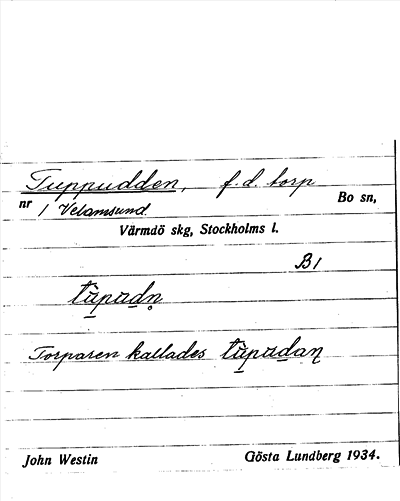 Tuppudden, f.d. torp
nr 1 Velamsund. Bo sn,
Värmdö skg, Stockholms l.
B1
Torparen kallades
John Westin Gösta Lundberg 1934.